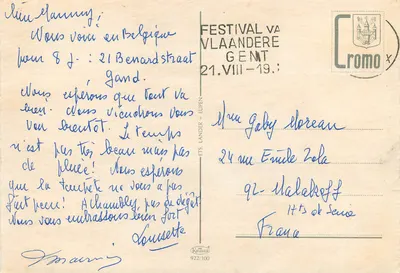 Nous voici en Belgique
pour 8 j. : 21 Benardstraat
Gand.
Nous espérons que tout va
bien. Nous viendrons vous
voir bientôt. Le temps
n'est pas très beau mais pas
de pluie! Nous espérons
que la tempête ne vous a pas
fait peur! A Chambly, pas de dégât
Nous vous embrassons bien fort
FESTIVAL VA
VLAANDERE
GENT
21.VIII-19.
Cromo
Mme Gaby Moreau
24 rue Emile Zola
92-Malakoff
Hts de Seine
France